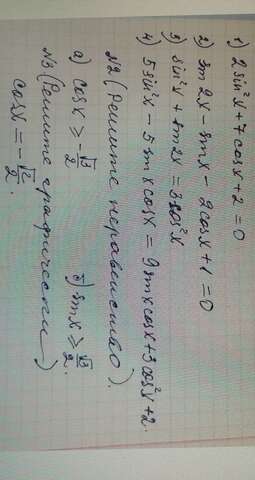 1) 2sin²x+7cosx+2=0
2) sin2x-sinx-2cosx+1=0
3) sin²x+sin2x=3cos²x
4) 5sin²x-5sinxcosx=9sinxcosx+3cos²x+2.
№2 (Решите неравенство).
а) cosx≥-√3/2 б) sinx≥√3/2.
№3 (Решите графически)
cosx=-√2/2.